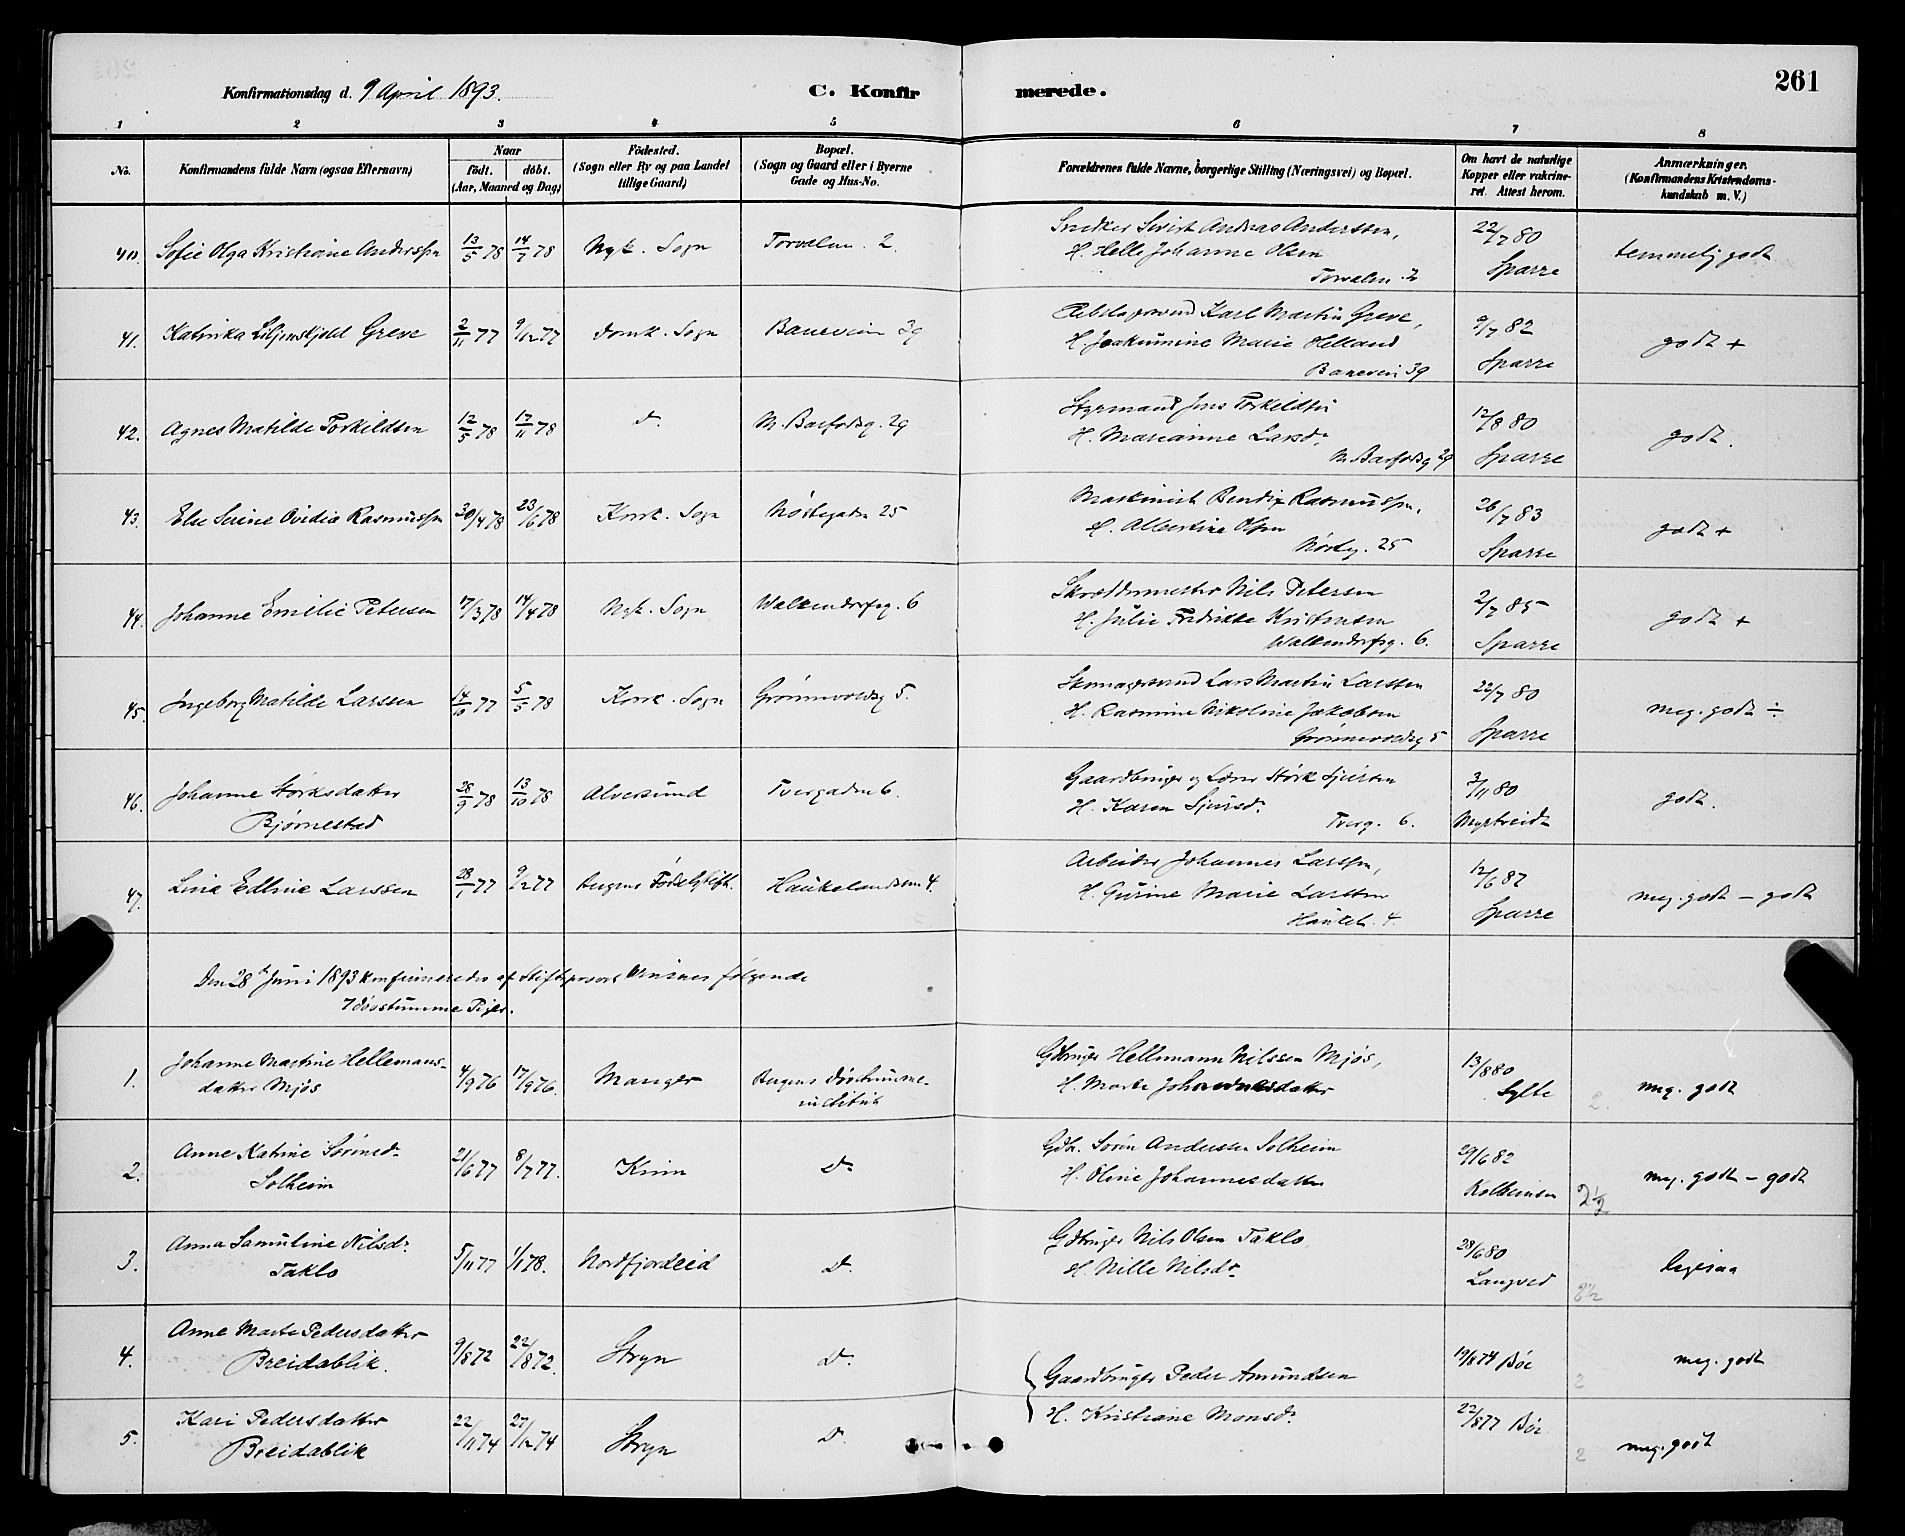 261
Konfirmationsdag d. 9 April 1893.
C. Konfir merede.
1 2 3 4 5 6 7 8
No. Konfirmandens fulde Navn (ogsaa Efternavn)
Naar
födt. döbt.
(Aar, Maaned og Dag)
Födested.
(Sogn eller By og paa Landet
tillige Gaard)
Bopæl.
(Sogn og Gaard eller i Byerne
Gade og Hus-No.
Forældrenes fulde Navne, borgerlige Stilling (Næringsvei) og Bopæl.
Om havt de naturlige
Kopper eller vakcine-
ret. Attest herom.
Anmærkninger.
(Konfirmandens Kristendoms-
kundskab m. V.)
40. Sofie Olga Kristiane Anderssen 13/5 78 14/7 78 Nyk. Sogn Torvalm. 2 Snedker Sivert Andreas Anderssen, 22/7 80 temmelig godt
H. Helle Johanne Olsen Sparre
Torvalm. 2
41. Katinka Liljenskjold Greve 2/11 77 9/12 77 Domk. Sogn Baneveien 39 Karl Martin Greve, 9/7 82 godt +
H. Joakimine Marie Helland Sparre
Banevei 39
42. Agnes Matilde Torkildsen 12/5 78 17/11 78 d. M. Barfodsg. 29 Styrmand Jens Torkeldsen 12/8 80 godt.
H. Marianne Larsd. Sparre
M. Barfodsg 29
43. Else Serine Ovidia Rasmussen 30/4 78 23/6 78 Korsk. Sogn Nöstegaden 25 Maskinist Bendix Rasmussen, 26/7 83 godt +
H. Albertine Olsen Sparre
Nösteg. 25
44. Johanne Emilie Petersen 17/3 78 14/4 78 Nyk. Sogn Walkendorfsg. 6 Skræddermester Nils Petersen 2/7 85 godt +
H. Julie Fredrikke Kristensen Sparre
Walkendorfsg. 6.
45. Ingeborg Matilde Larssen 14/10 77 5/5 78 Korsk. Sogn Grönnevoldsg 5. Skomagersvend Lars Martin Larssen 22/7 80 meg. godt ÷
H. Rasmine Nikoline Jakobsen Sparre
Grönnevoldsg 5
46. Johanne Störksdatter 28/9 78 13/10 78 Alversund Tvergaden 6. Gaardbruger og Lærer Störk Sjursen 3/11 80 godt.
Björnestad H. Karen Sjursd. Myrtveidt
Tverg. 6.
47. Lina Edline Larssen 28/1 77 9/2 77 Bergens Födselsstift. Haukelandsvn 4. Arbeider Johannes Larssen, 12/6 87 meg. godt – godt
H. Gurine Marie Larssen Sparre
Haukel. 4
Den 28de Juni 1893 konfirmeredes af Stiftsprovst følgende
7 døvstumme Piger.
1. Johanne Martine Hellemans- 4/9 76 17/9 76. Manger Bergens døvstumme- Gdbruger Hellemann Nilssen Mjös, 13/8 80 meg. godt
datter Mjös institut H. Marte Johannesdatter Sylte 2.
2. Anne Katrine Sörensd. 21/6 77 8/7 77. Kinn D. Gdbr. Sören Andersen Solheim 29/6 82 meg. godt – godt
Solheim H. Oline Johannesdatter Kolbeinsen 2½
3. Anna Samuline Nilsd. 5/11 77 1/1 78. Nordfjordeid D. Gdbruger Nils Olsen Taklo, 28/6 80 ligesaa
Taklo H. Nille Nilsdr. Langved 2½
4. Anne Marte Pedersdatter 9/8 72 22/8 72. Stryn D. Gaardbruger Peder Amundsen 19/8 74 Böe meg. godt
Breidablik. 2
5. Kari Pedersdatter 22/11 74 27/12 74 Stryn D. H. Kristiane Monsd. 22/8 77 Böe meg. godt
Breidablik 2